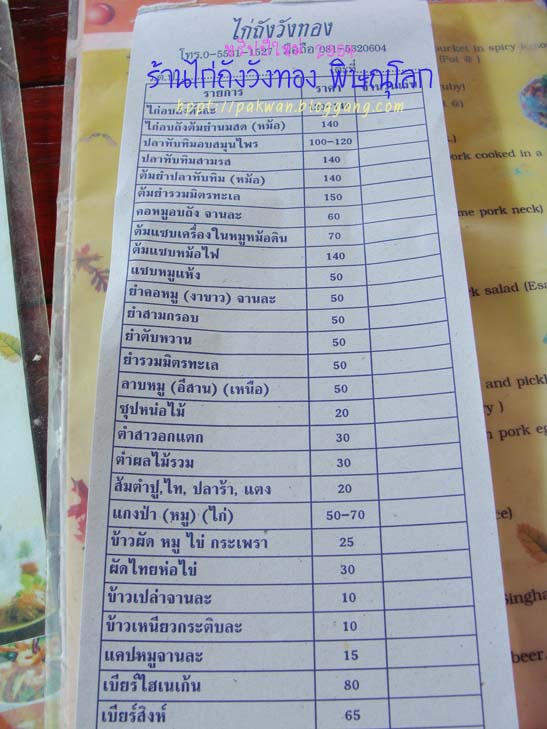 ไก่ถังวังทอง
โทร.0-5531-1527 มือถือ 081-5320604
ร้านไก่ถังวังทอง พิษณุโลก
รายการ ราคา
http://pakwan.bloggang.com
ไก่อบถังตัวละ
ไก่อบถังต้มยำนมสด (หม้อ) 140
ปลาทับทิมอบสมุนไพร 100-120
ปลาทับทิมสามรส 140
ต้มยำปลาทับทิม (หม้อ) 140
ต้มยำรวมมิตรทะเล 150
คอหมูอบถัง จานละ 60
ต้มแซบเครื่องในหมูหม้อดิน 70
ต้มแซบหม้อไฟ 140
แซบหมูแห้ง 50
ยำคอหมู (งาขาว) จานละ 50
ยำสามกรอบ 50
ยำตับหวาน 50
ยำรวมมิตรทะเล 50
ลาบหมู (อีสาน) (เหนือ) 50
ซุปหน่อไม้ 20
ตำสาวอกแตก 30
ตำผลไม้รวม 30
ส้มตำปู,ไท, ปลาร้า, แตง 20
แกงป่า (หมู) (ไก่) 50-70
ข้าวผัด หมู ไข่ กระเพรา 25
ผัดไทยห่อไข่ 30
ข้าวเปล่าจานละ 10
ข้าวเหนียวกระติบละ 10
แคปหมูจานละ 15
เบียร์ไฮเนเก้น 80
เบียร์สิงห์ 65
bucket in spicy
(Pot
ork cooked in a
me pork neck)
salad (Esa
and pickl
pork eg
ingha
beer.